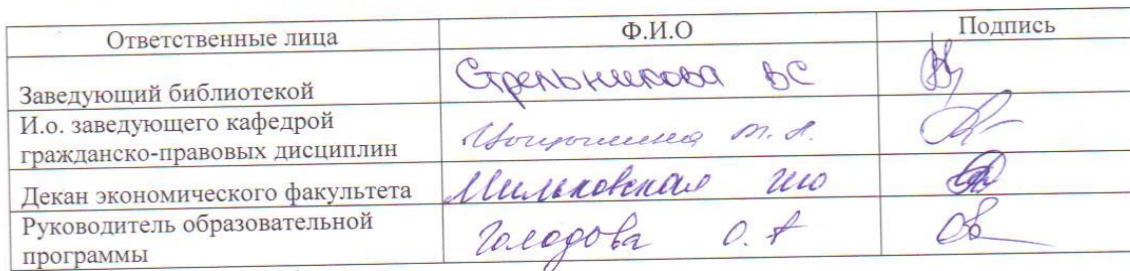 Ответственные лица Ф.И.О Подпись
Заведующий библиотекой Стрельникова ВС
И.о. заведующего кафедрой
гражданско-правовых дисциплин
Декан экономического факультета Мильковская
Руководитель образовательной
программы Голодова О.А